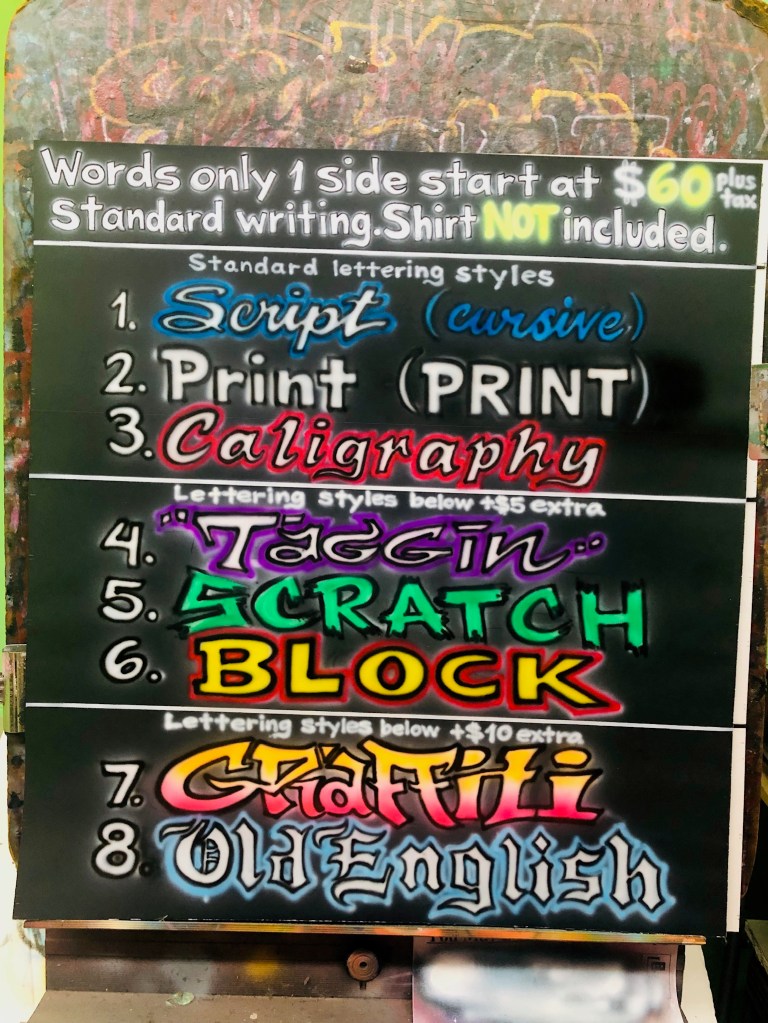 Words only 1 side start at $60 plus tax
Standard writing. Shirt NOT included.
Standard lettering styles
1. Script (cursive)
2. Print (PRINT)
3. Caligraphy
Lettering styles below +$5 extra
4. "Taggin"
5. SCRATCH
6. BLOCK
Lettering styles below +$10 extra
7. Graffiti
8. Old English